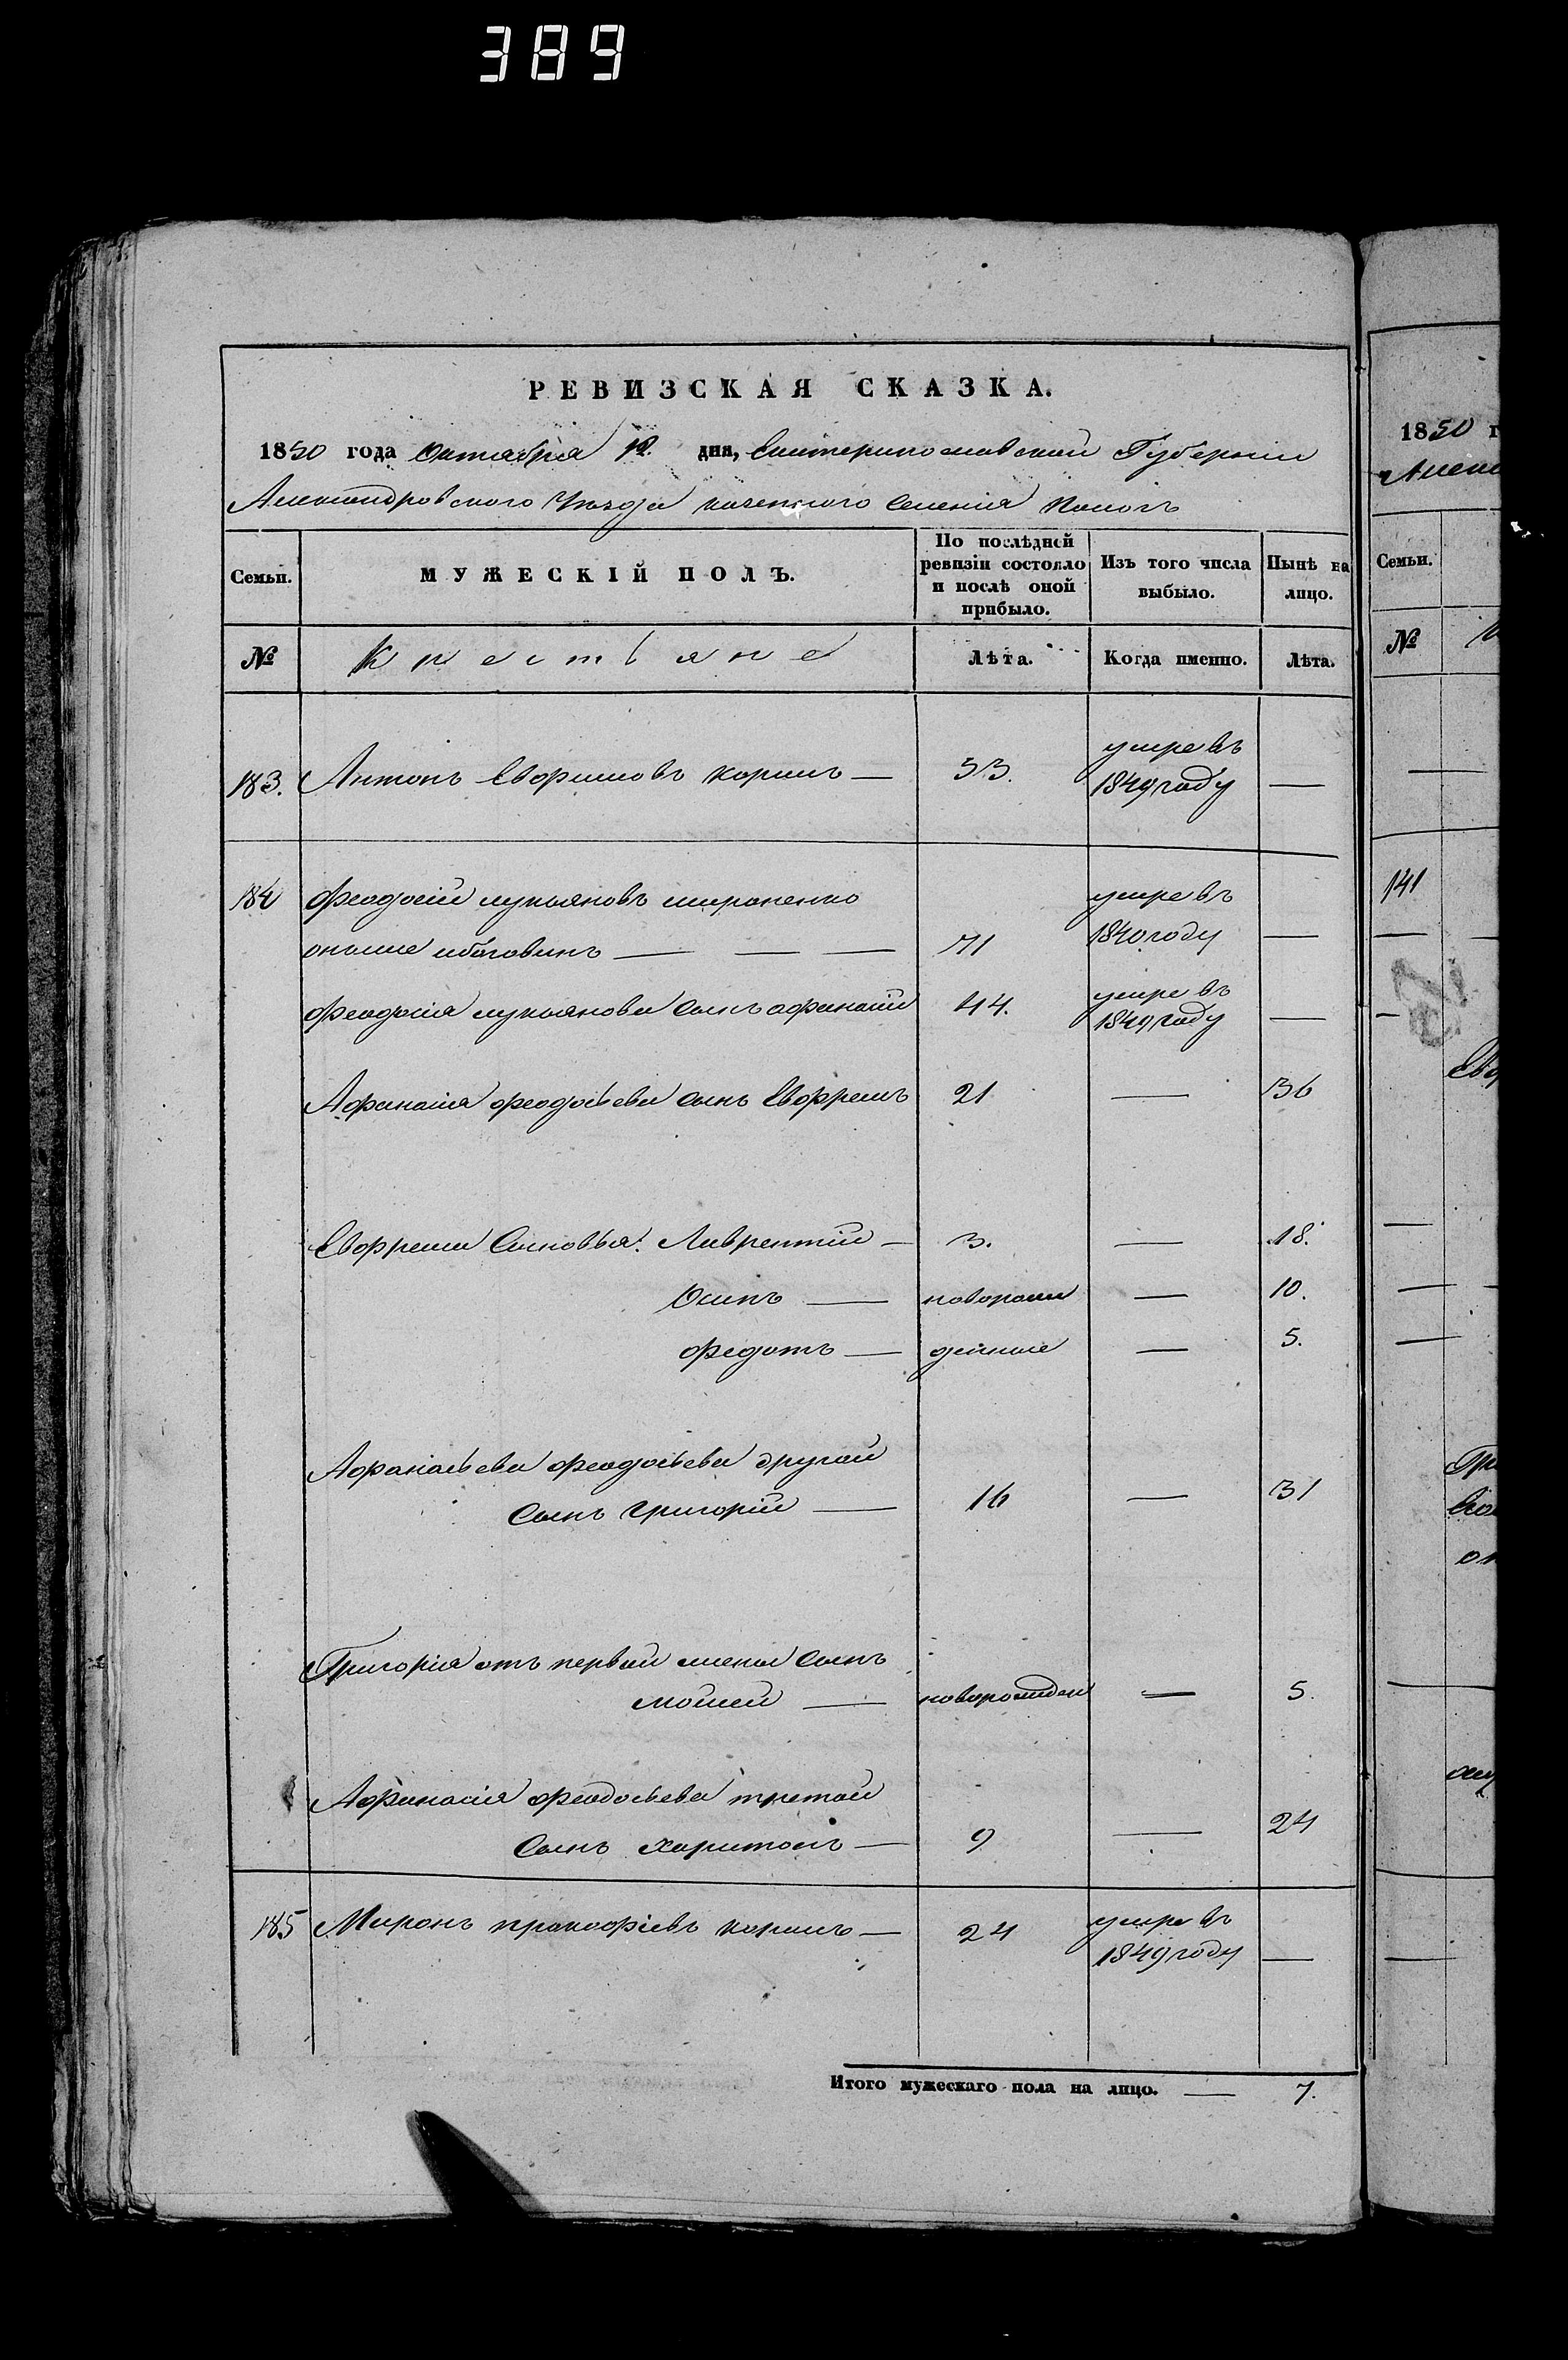 389
РЕВИЗСКАЯ СКАЗКА.
1850 года Октября 12. дня, Екатеринославской Губерніи
Александровского Уѣзда казенного Селенія Пологъ
Семьи.
МУЖЕСКІЙ ПОЛЪ.
По послѣдней ревизіи состояло и послѣ оной прибыло.
Изъ того числа выбыло.
Нынѣ на лицо.
№
Крестьяне
Лѣта.
Когда именно.
Лѣта.
183. Антонъ Евфимовъ Коржъ — 33. умре въ 1849 году —
184 Феодосій Лукьяновъ Мироненко
онъже — — — 71 умре въ 1840 году —
Феодосія Лукьянова Сынъ Афанасій 44. умре въ 1849 году —
Афанасія Феодосьева Сынъ Евфремъ 21 — 36
Евфрема Сыновья: Лаврентій — 3. — 18.
Осипъ — новорож — 10.
Федотъ — денные — 5.
Афанасьева Феодосьева другой
Сынъ Григорій — 16 — 31
Григорія отъ первой жены Сынъ
Мойсей — новорожден — 5.
Афанасія Феодосьева третой
Сынъ Харитонъ — 9 — 24
185 Миронъ Прокофіевъ Коржъ — 24 умре въ 1849 году —
Итого мужескаго пола на лицо. — 7.
1850 г
Алекс
Семьи.
№
141